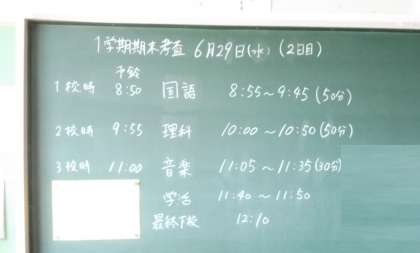 1学期期末考査 6月29日(水) (2日目)
予鈴
1校時 8:50 国語 8:55～9:45(50分)
2校時 9:55 理科 10:00～10:50(50分)
3校時 11:00 音楽 11:05～11:35(30分)
学活 11:40～11:50
最終下校 12:10